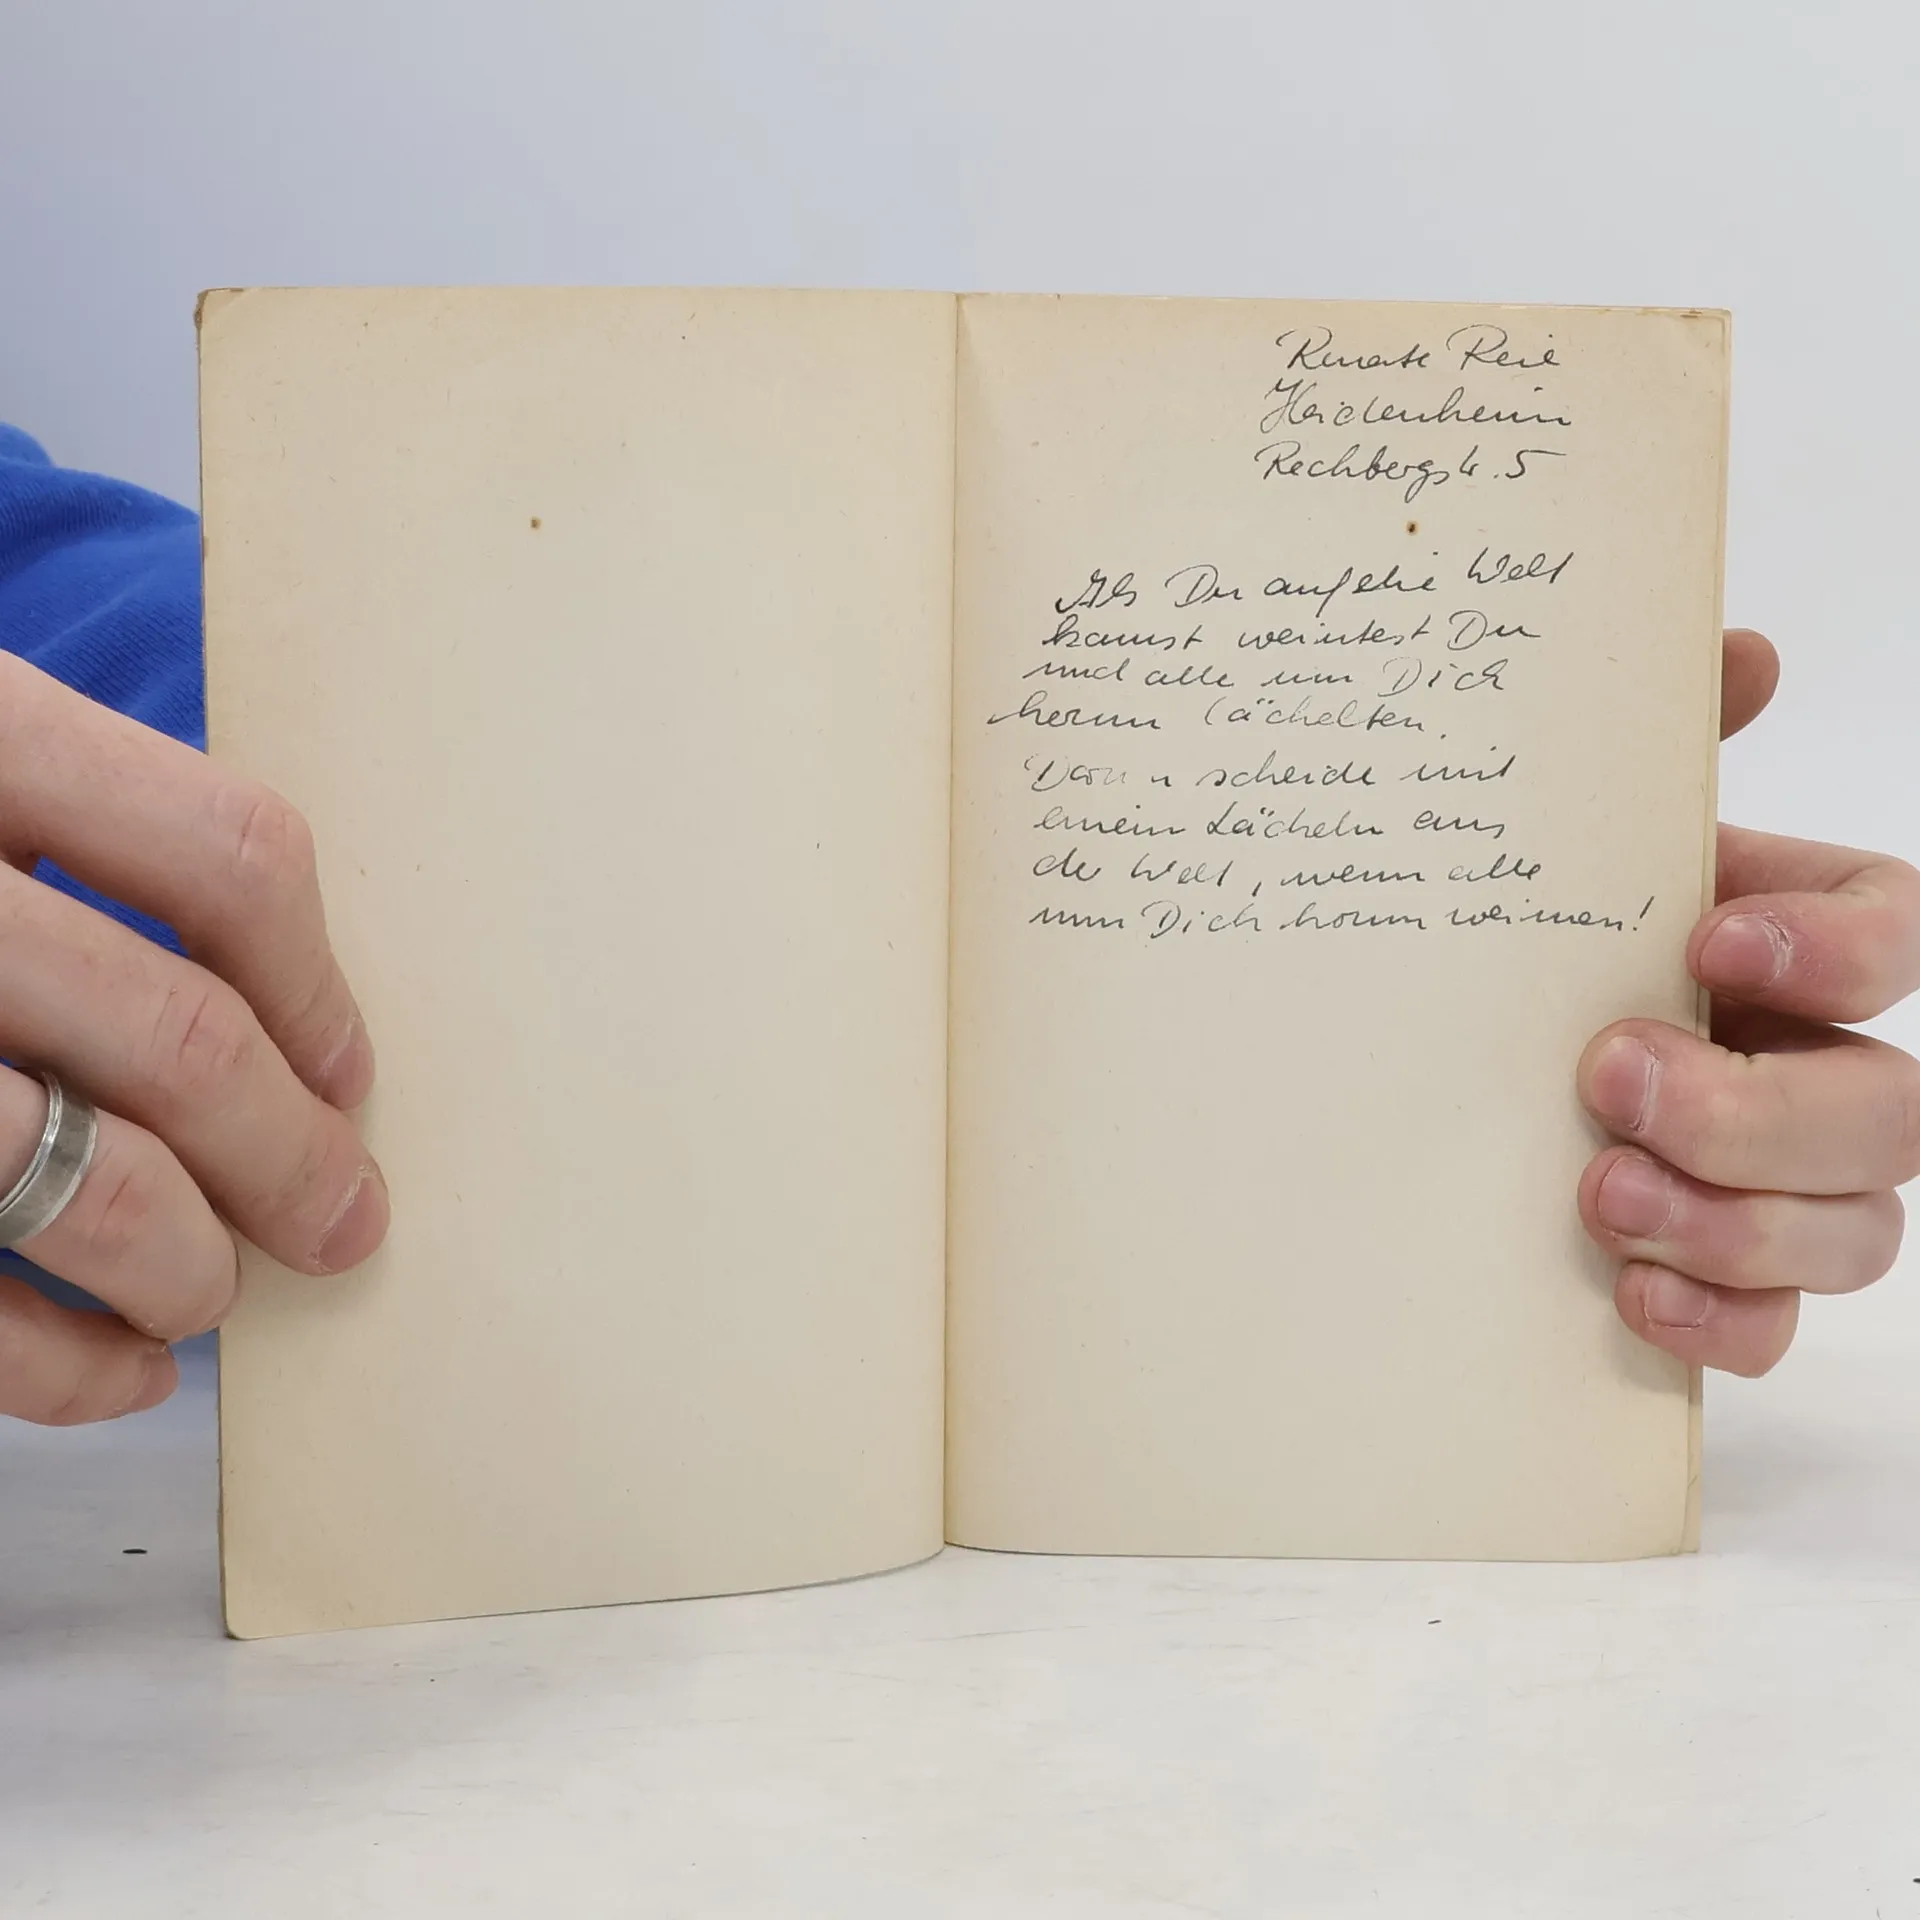 Renate Reil
Heidenheim
Rechbergstr. 5
Als Du auf die Welt
kamst weintest Du
und alle um Dich
herum lächelten.
Dann scheide mit
einem Lächeln aus
der Welt, wenn alle
um Dich herum weinen!